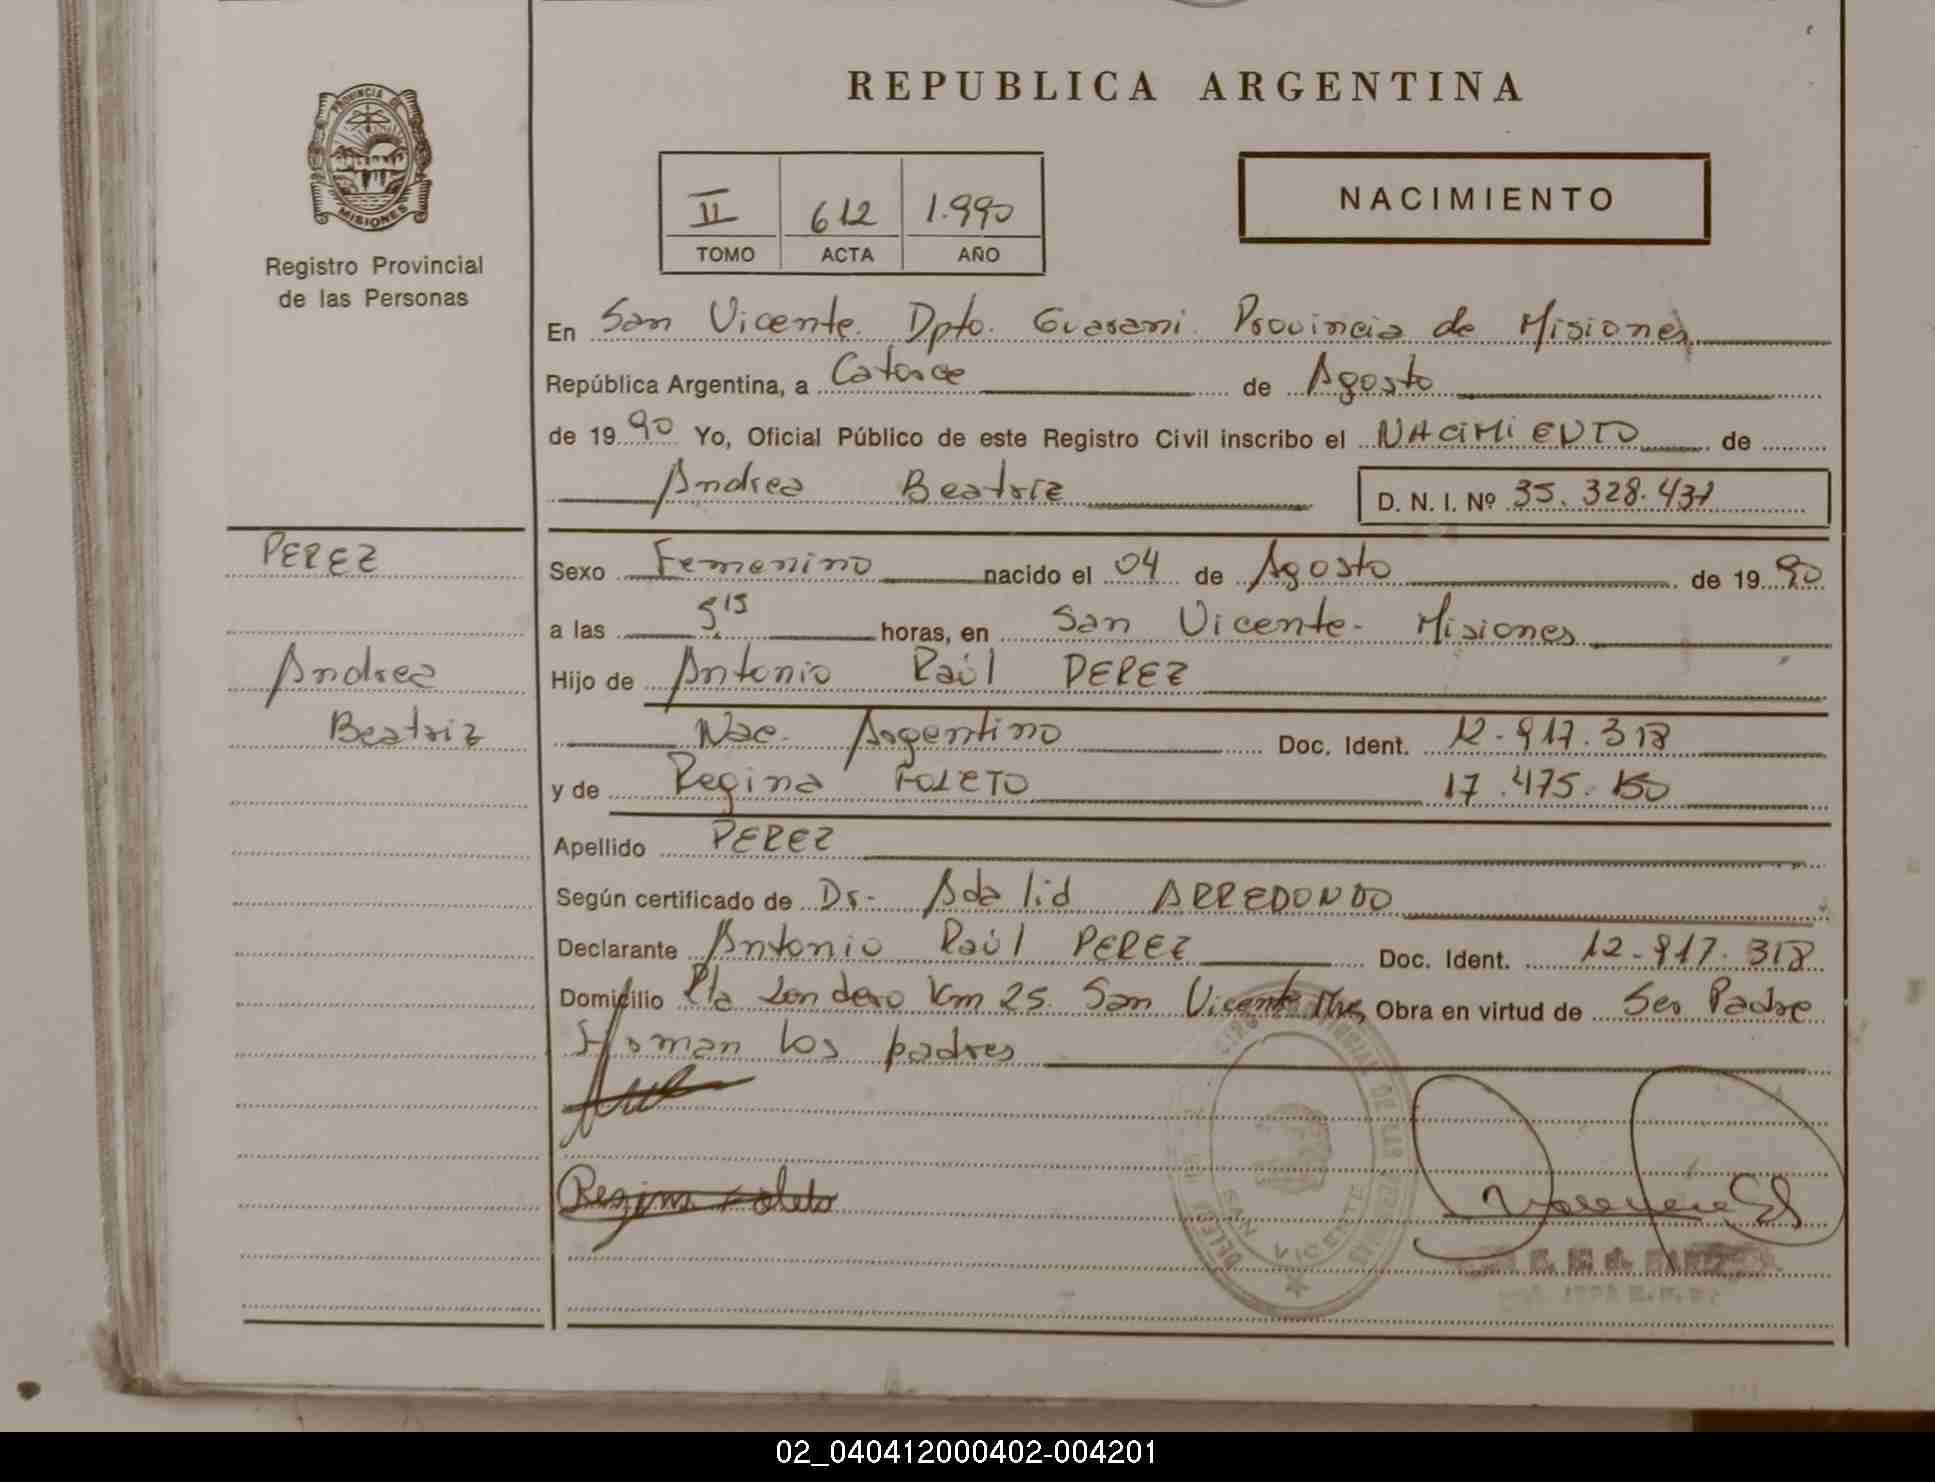 REPUBLICA ARGENTINA
PROVINCIA DE
MISIONES
Registro Provincial
de las Personas
II 612 1.990
TOMO ACTA AÑO
NACIMIENTO
En San Vicente. Dpto. Guarani. Provincia de Misiones
República Argentina, a Catorce de Agosto
de 1990 Yo, Oficial Público de este Registro Civil inscribo el NACIMIENTO de
Andrea Beatriz D. N. I. Nº 35.328.431
PEREZ
Andrea
Beatriz
Sexo Femenino nacido el 04 de Agosto de 1990
a las 5 15 horas, en San Vicente - Misiones
Hijo de Antonio Raúl PEREZ
Nac. Argentino Doc. Ident. 12.917.318
y de Regina FOLETO 17.475.150
Apellido PEREZ
Según certificado de Dr. Adalid ARREDONDO
Declarante Antonio Raúl PEREZ Doc. Ident. 12.917.318
Domicilio Londero Km 25. San Vicente Obra en virtud de Ser Padre
Firman los padres
Regina Foleto
SAN VICENTE
02_040412000402-004201